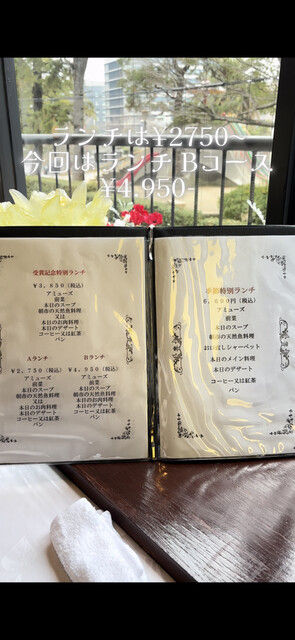 ランチは¥2750~
今回はランチBコース
¥4,950-
受賞記念特別ランチ
¥3,850(税込)
アミューズ
前菜
本日のスープ
朝市の天然魚料理
又は
本日のお肉料理
本日のデザート
コーヒー又は紅茶
パン
Aランチ
¥2,750(税込)
アミューズ
前菜
本日のスープ
朝市の天然魚料理
又は
本日のお肉料理
本日のデザート
コーヒー又は紅茶
パン
Bランチ
¥4,950(税込)
アミューズ
前菜
本日のスープ
朝市の天然魚料理
本日のお肉料理
本日のデザート
コーヒー又は紅茶
パン
特別ランチ
6,600円(税込)
アミューズ
前菜
本日のスープ
朝市の天然魚料理
お口直しシャーベット
本日のメイン料理
本日のデザート
コーヒー又は紅茶
パン